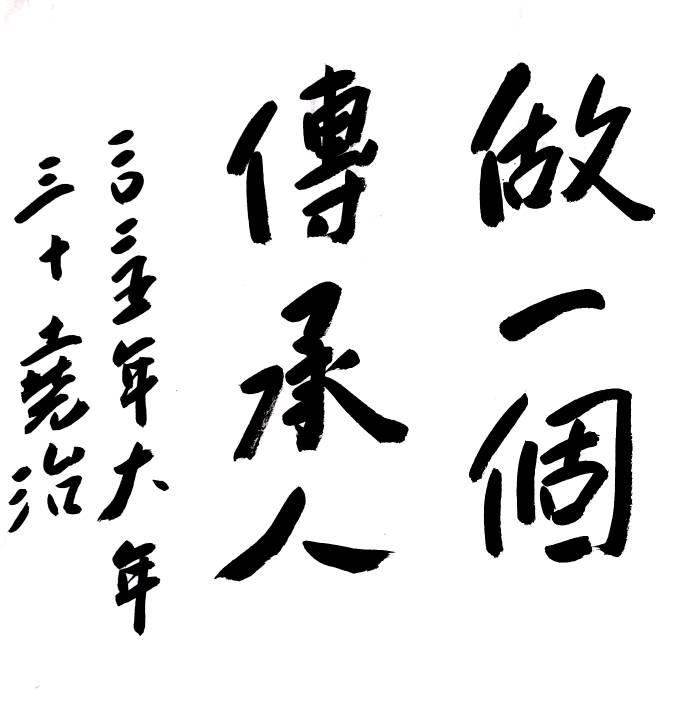 做一個
傳承人
二〇二五年大年
三十堯治